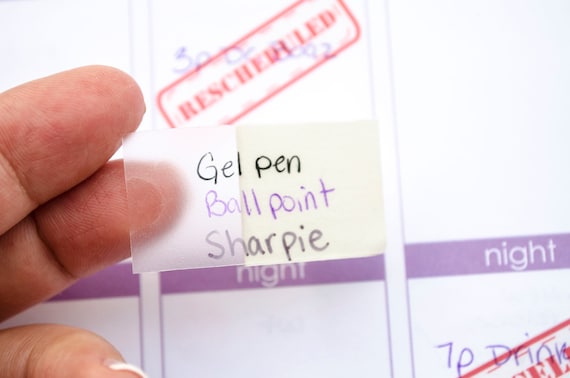 3p Dr
RESCHEDULED
Gel pen
Ball point
Sharpie
night
night
7p Drink